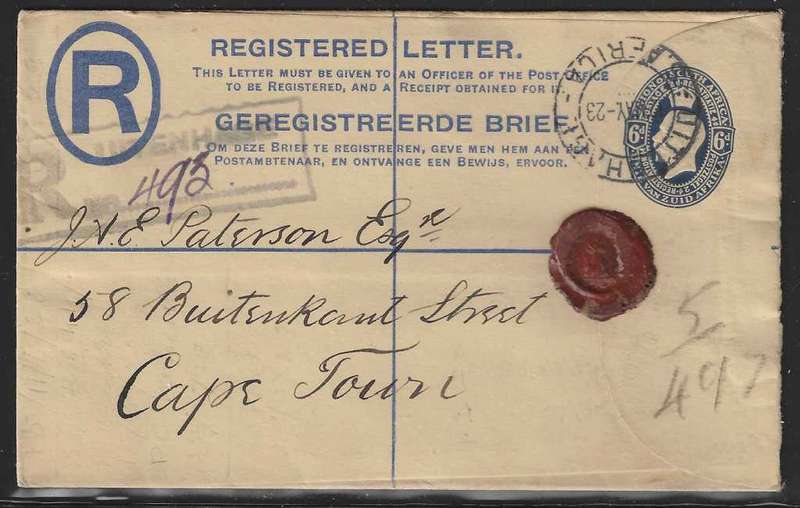 R
REGISTERED LETTER.
THIS LETTER MUST BE GIVEN TO AN OFFICER OF THE POST OFFICE
TO BE REGISTERED, AND A RECEIPT OBTAINED FOR IT.
GEREGISTREERDE BRIEF
OM DEZE BRIEF TE REGISTREREN, GEVE MEN HEM AAN EEN
POSTAMBTENAAR, EN ONTVANGE EEN BEWIJS, ERVOOR.
6d 6d
VAN ZUID AFRIKA
-23
UITENHAGE
R
493
J. N. E. Paterson Esqre
58 Buitenkant Street
Cape Town
497